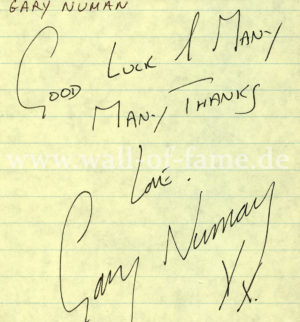 GARY NUMAN
GOOD LUCK & MANY
MANY THANKS
www.wall-of-fame.de
Love.
Gary Numan
XX.